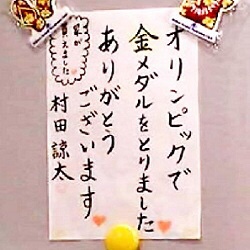 オリンピックで
金メダルをとりました
ありがとう
ございます
家が
買えました
村田諒太